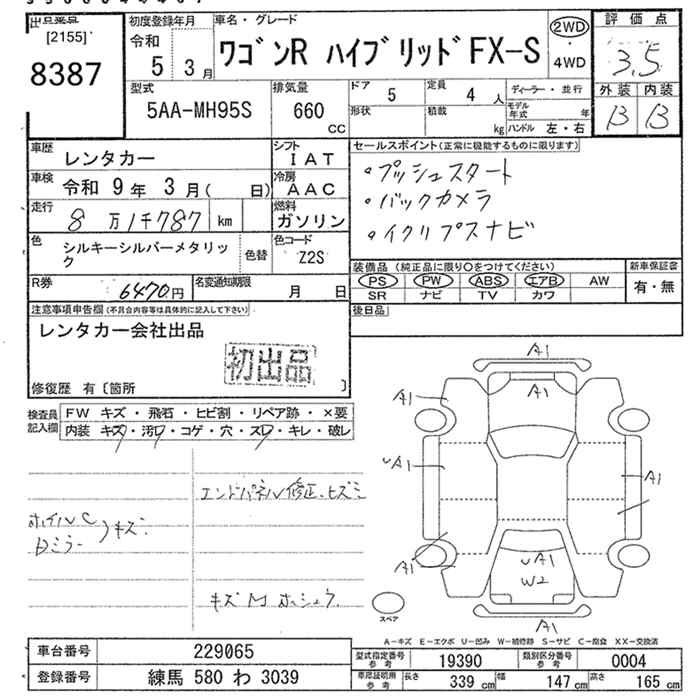 出品業店
[2155]
8387
初度登録年月
令和
5 3月
車名・グレード
ワゴンR ハイブリッド FX-S
2WD
・
4WD
評価点
3.5
外装 内装
B B
型式
5AA-MH95S
排気量
660
CC
ドア 5
形状
定員 4 人
積載 kg
ディーラー・並行
モデル年式 年
ハンドル 左・右
車歴 レンタカー
シフト IAT
車検 令和 9年 3月( 日)
冷房 AAC
走行 8万1千787 km
燃料 ガソリン
色 シルキーシルバーメタリック
色替
色コード Z2S
R券 6470円
名変通知期限 月 日
セールスポイント(正常に機能するものに限ります)
・プッシュスタート
・バックカメラ
・イクリプスナビ
装備品(純正品に限り○をつけてください)
PS PW ABS エアB AW
SR ナビ TV カワ
新車保証書
有・無
後日品
注意事項申告欄(不具合内容等は具体的に記入して下さい)
レンタカー会社出品
初出品
修復歴 有〔箇所 〕
検査員記入欄
FW キズ・飛石・ヒビ割・リペア跡・×要
内装 キズ・汚・コゲ・穴・スレ・キレ・破レ
エンドパネル修正、ヒズミ
ホイルC
Dミラー
)キズ
キズM ホシュウ
A1
A1
A1
A1
A1
A1
A1
W2
A1
スペア
A-キズ E-エクボ U-凹み W-補修跡 S-サビ C-腐食 XX-交換済
車台番号 229065
登録番号 練馬 580 わ 3039
型式指定番号 参考 19390
類別区分番号 参考 0004
車庫証明用 参考 長さ 339 cm 幅 147 cm 高さ 165 cm